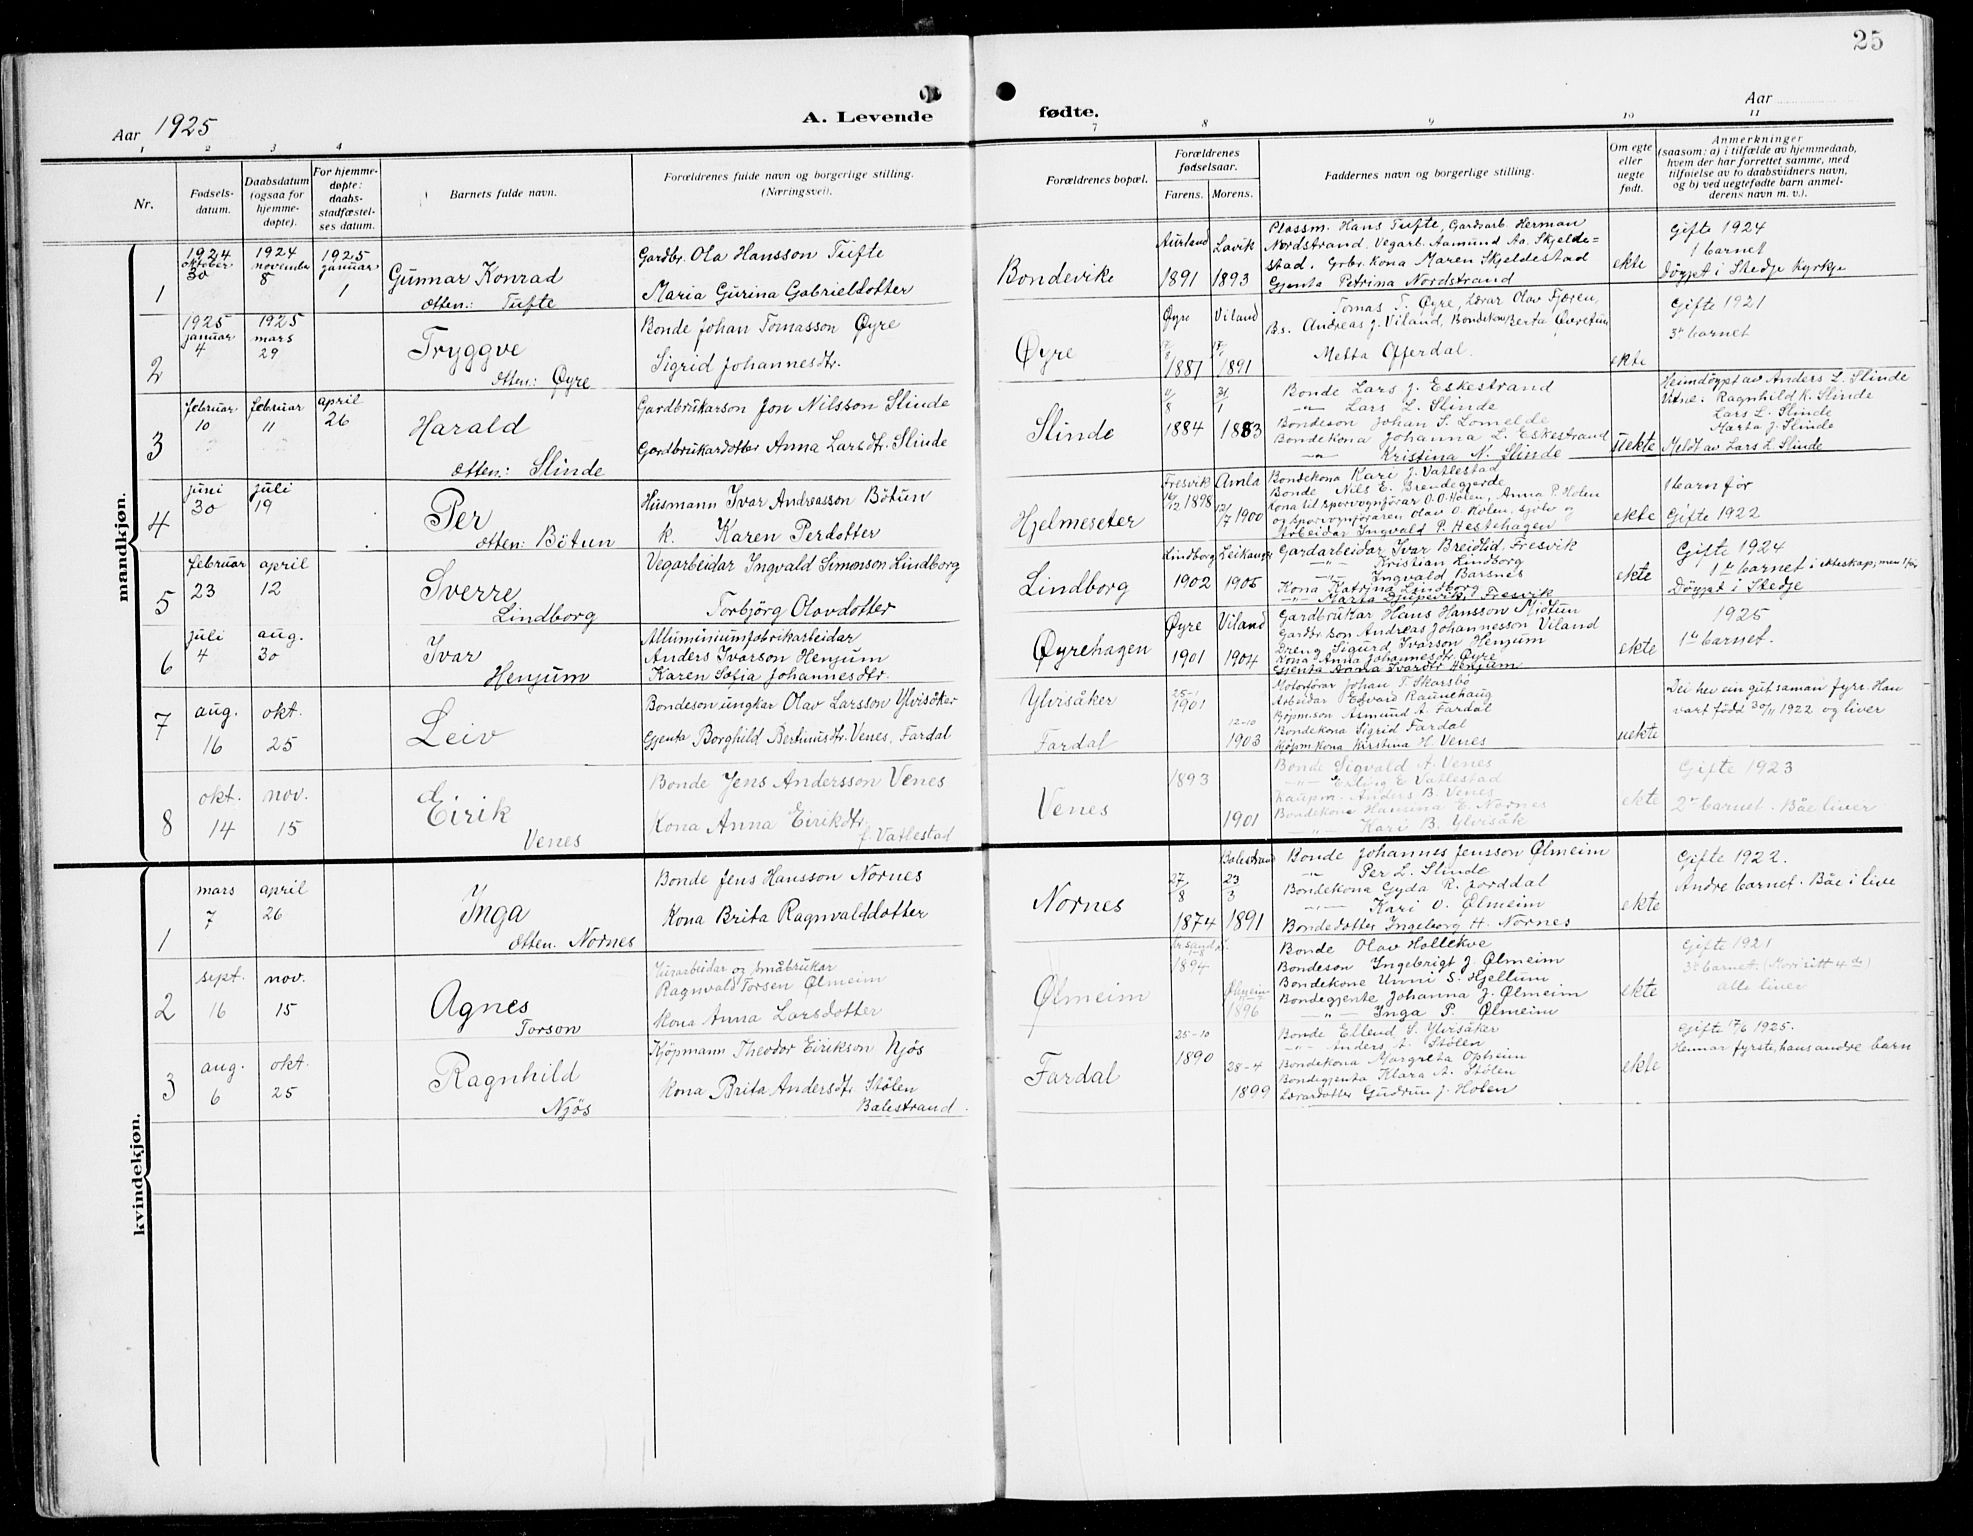 25
Aar 1925
A. Levende
fødte.
Aar
1 2 3 4 7 8 9 10 11
Nr.
Fødsels-
datum.
Daabsdatum
(ogsaa for
hjemme-
døpte).
For hjemme-
døpte:
daabs-
stadfæstel-
ses datum.
Barnets fulde navn.
Forældrenes fulde navn og borgerlige stilling.
(Næringsvei).
Forældrenes bopæl.
Forældrenes
fødselsaar.
Farens. Morens.
Faddernes navn og borgerlige stilling.
Om egte
eller
uegte
født.
Anmerkninger
(saasom: a) i tilfælde av hjemmedaab,
hvem der har forrettet samme, med
tilføielse av to daabsvidners navn,
og b) ved uegtefødte barn anmel-
derens navn m. v.).
mandkjøn.
1
1924
oktober
30
1924
november
8
1925
januar
1
Gunnar Konrad
Ætten: Tufte
Gardbr. Ola Hansson Tufte
Maria Gurina Gabrieldotter
Bondevike
Aurland
1891
Lavik
1893
Plassm. Hans Tufte, Gardsarb. Herman
Nordstrand. Vegarb. Aamund Aa. Skjelde=
stad. Grbr. kona Maren Skjeldestad
Gjenta Petrina Nordstrand
ekte
Gifte 1924
1 barnet
Døypt i Stedje kyrkje
2
1925
januar
4
1925
mars
29
Tryggve
Ætten: Øyre
Bonde Johan Tomasson Øyre
Sigrid Johannesdtr.
Øyre
Øyre
1887
Viland
1891
Tomas T. Øyre, Lærar Olav Fjæren,
Bs. Andreas J. Viland, Bondekona Berta Øvretun
Metta Offerdal.
ekte
Gifte 1921
3. barnet
3
februar
10
februar
11
april
26
Harald
Ætten: Slinde
Gardbrukarson Jon Nilsson Slinde
Gardbrukardotter Anna Larsdtr. Slinde
Slinde
11/8
1884
31/1
1883
Bonde Lars J. Eskestrand
-"- Lars L. Slinde
Bondeson Johan S. Lomelde
Bondekona Johanna L. Eskestrand
-"- Kristina N. Slinde
uekte
Heimdøypt av Anders L. Slinde
Vitne: Ragnhild K. Slinde
Lars L. Slinde
Marta J. Slinde
Meldt av Lars L. Slinde
4
juni
30
juli
19
Per
Ætten: Bøtun
Husmann Ivar Andreasson Bøtun
k. Karen Perdotter
Hjelmeseter
Fresvik
16/12 1898
Amla
12/7 1900
Bondekona Kari J. Vatlestad
Bonde Nils E. Brendegjerde
Kona til sporvognförar O. O. Holen, Anna P. Holen
og sporvognföraren Olav O. Holen, sjølv og
Arbeidar Ingvald P. Hestehagen
ekte
1 barn før
Gifte 1922
5
februar
23
april
12
Sverre
Lindborg
Vegarbeidar Ingvald Simonson Lindborg
Torbjörg Olavdotter
Lindborg
Lindborg
1902
Leikanger
1905
Gardarbeidar Ivar Breidlid, Fresvik
-"- Kristian Lindborg
-"- Ingvald Barsnes
Kona Katrina Lindborg
-"- Marta Djupevik, Fresvik
ekte
Gifte 1924
1te barnet i ekteskap, men 1 før
Døypt i Stedje
6
juli
4
aug.
30
Ivar
Henjum
Alluminiumfabrikarbeidar
Anders Ivarson Henjum
Karen Sofia Johannesdtr.
Øyrehagen
Øyre
1901
Viland
1904
Gardbrukar Hans Hansson Midtun
Gardbr. son Andreas Johannesson Viland
Dreng Sigurd Ivarson Henjum
Kona Anna Johannesdtr. Øyre
Gjenta Anna Ivardtr Henjum
ekte
1925
1te barnet.
7
aug.
16
okt.
25
Leiv
Bondeson ungkar Olav Larsson Ylvisåker
Gjenta Borghild Bertinusdtr. Venes, Fardal
Ylvisåker
Fardal
25-1
1901
12-10
1903
Motorförar Johan T. Skarsbö
Arbeidar Edvard Raunehaug
Kjöpm.son Asmund A. Fardal
Bondekona Sigrid Fardal
Kjöpm.kona Kirstina H. Venes
uekte
Dei hev ein gut saman fyrr. Han
vart född 30/11 1922 og liver
8
okt.
14
nov.
15
Eirik
Venes
Bonde Jens Andersson Venes
Kona Anna Eirikdtr.
f. Vatlestad
Venes
1893
1901
Bonde Sigvald A. Venes
-"- Erling E. Vatlestad
Kaupm. Anders B. Venes
Bondekona Hansina E. Nornes
-"- Kari B. Ylvisåk.
ekte
Gifte 1923
2re barnet. Båe liver
kvindekjøn.
1
mars
7
april
26
Inga
Ætten. Nornes
Bonde Jens Hansson Nornes
Kona Brita Ragnvalddotter
Nornes
27/8
1874
Balestrand
23/3
1891
Bonde Johannes Jensson Ølmeim
-"- Per L. Slinde
Bondekona Gyda R. Jorddal
-"- Kari O. Ølmeim
Bondedotter Ingeborg H. Nornes
ekte
Gifte 1922.
Andre barnet. Båe i live
2
sept.
16
nov.
15
Agnes
Torson
og småbrukar
Ragnvald Torsen Ølmeim
Kona Anna Larsdotter
Ølmeim
1894
Ølmeim
1896
Bonde Olav Hollekve
Bondeson Ingebrigt J. Ølmeim
Bondekone Unni S. Hjellum
Bondegjente Johanna J. Ølmeim
-"- Inga P. Ølmeim
ekte
Gifte 1921
3te barnet. (Mori sitt 4de)
alle liver
3
aug.
6
okt.
25
Ragnhild
Njøs
Kjöpmann Theodor Eirikson Njös
Kona Brita Andersdtr. Stölen
Balestrand.
Fardal
25-10
1890
28-4
1899
Bonde Ellend S. Ylvisåker
-"- Anders A. Stölen
Bondekona Margreta Opheim
Bondegjenta Klara A. Stölen
Lærardotter Gudrun J. Holen
ekte
Gifte 17/6 1925.
Hennar fyrste, hans andre barn